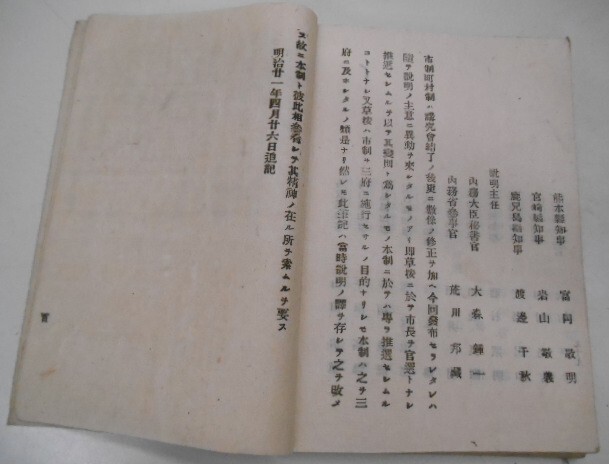 熊本縣知事　富岡敬明
宮崎縣知事　岩山敬義
鹿兒島縣知事　渡邊千秋
説明主任
内務大臣秘書官　大森鍾一
内務省參事官　荒川邦藏
市制町村制ハ講究會結了ノ後更ニ數條ノ修正ヲ加ヘ今回發布セラレタレハ
隨テ説明ノ主意ニ異動ヲ來シタルモノアリ即草按ニ於テ市長ヲ官選トナシ
推選セシムルヲ以テ其變則ト爲シタルモノ本制ニ於テハ專ラ推選セシムル
コトトナシ又草按ハ市制ヲ三府ニ施行セサルノ目的ナリシモ本制ハ之ヲ三
府ニ及ホシタルノ類是ナリ然レモ此筆記ハ當時説明ノ譯ヲ存シテ之ヲ改メ
ス故ニ本制ト彼此相參看シテ其精神ノ在ル所ヲ索ムルヲ要ス
明治廿一年四月廿六日追記